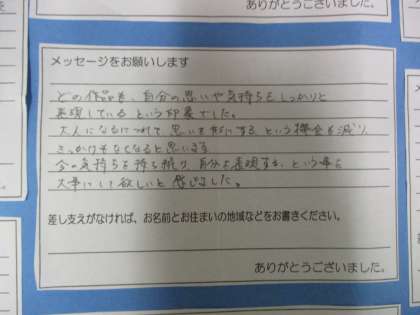 ありがとうございました。
メッセージをお願いします
どの作品も、自分の思いや気持ちをしっかりと
表現している という印象でした。
大人になるにつれて 思いを形にする という機会も減り、
きっかけもなくなると思います。
今の気持ちを持ち続け、自分を表現する、という事を
大事にして欲しいと感じました。
差し支えがなければ、お名前とお住まいの地域などをお書きください。
ありがとうございました。